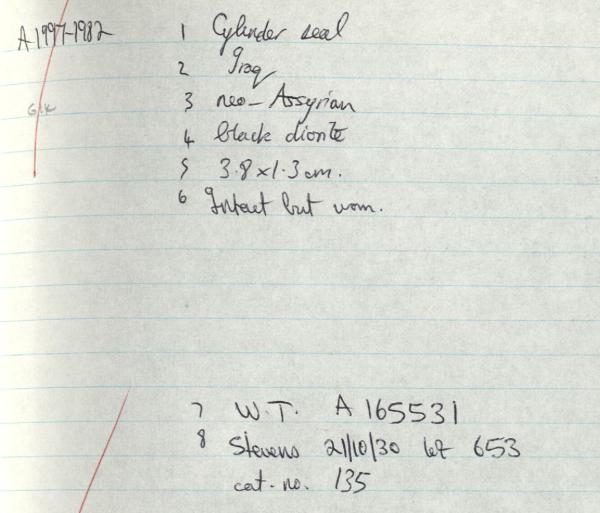 A1997-1982
1 Cylinder seal
2 Iraq
3 neo-Assyrian
4 black diorite
5 3.8 x 1.3 cm.
6 Intact but worn.
7 W.T. A 165531
8 Stevens 21/10/30 lot 653
cat. no. 135